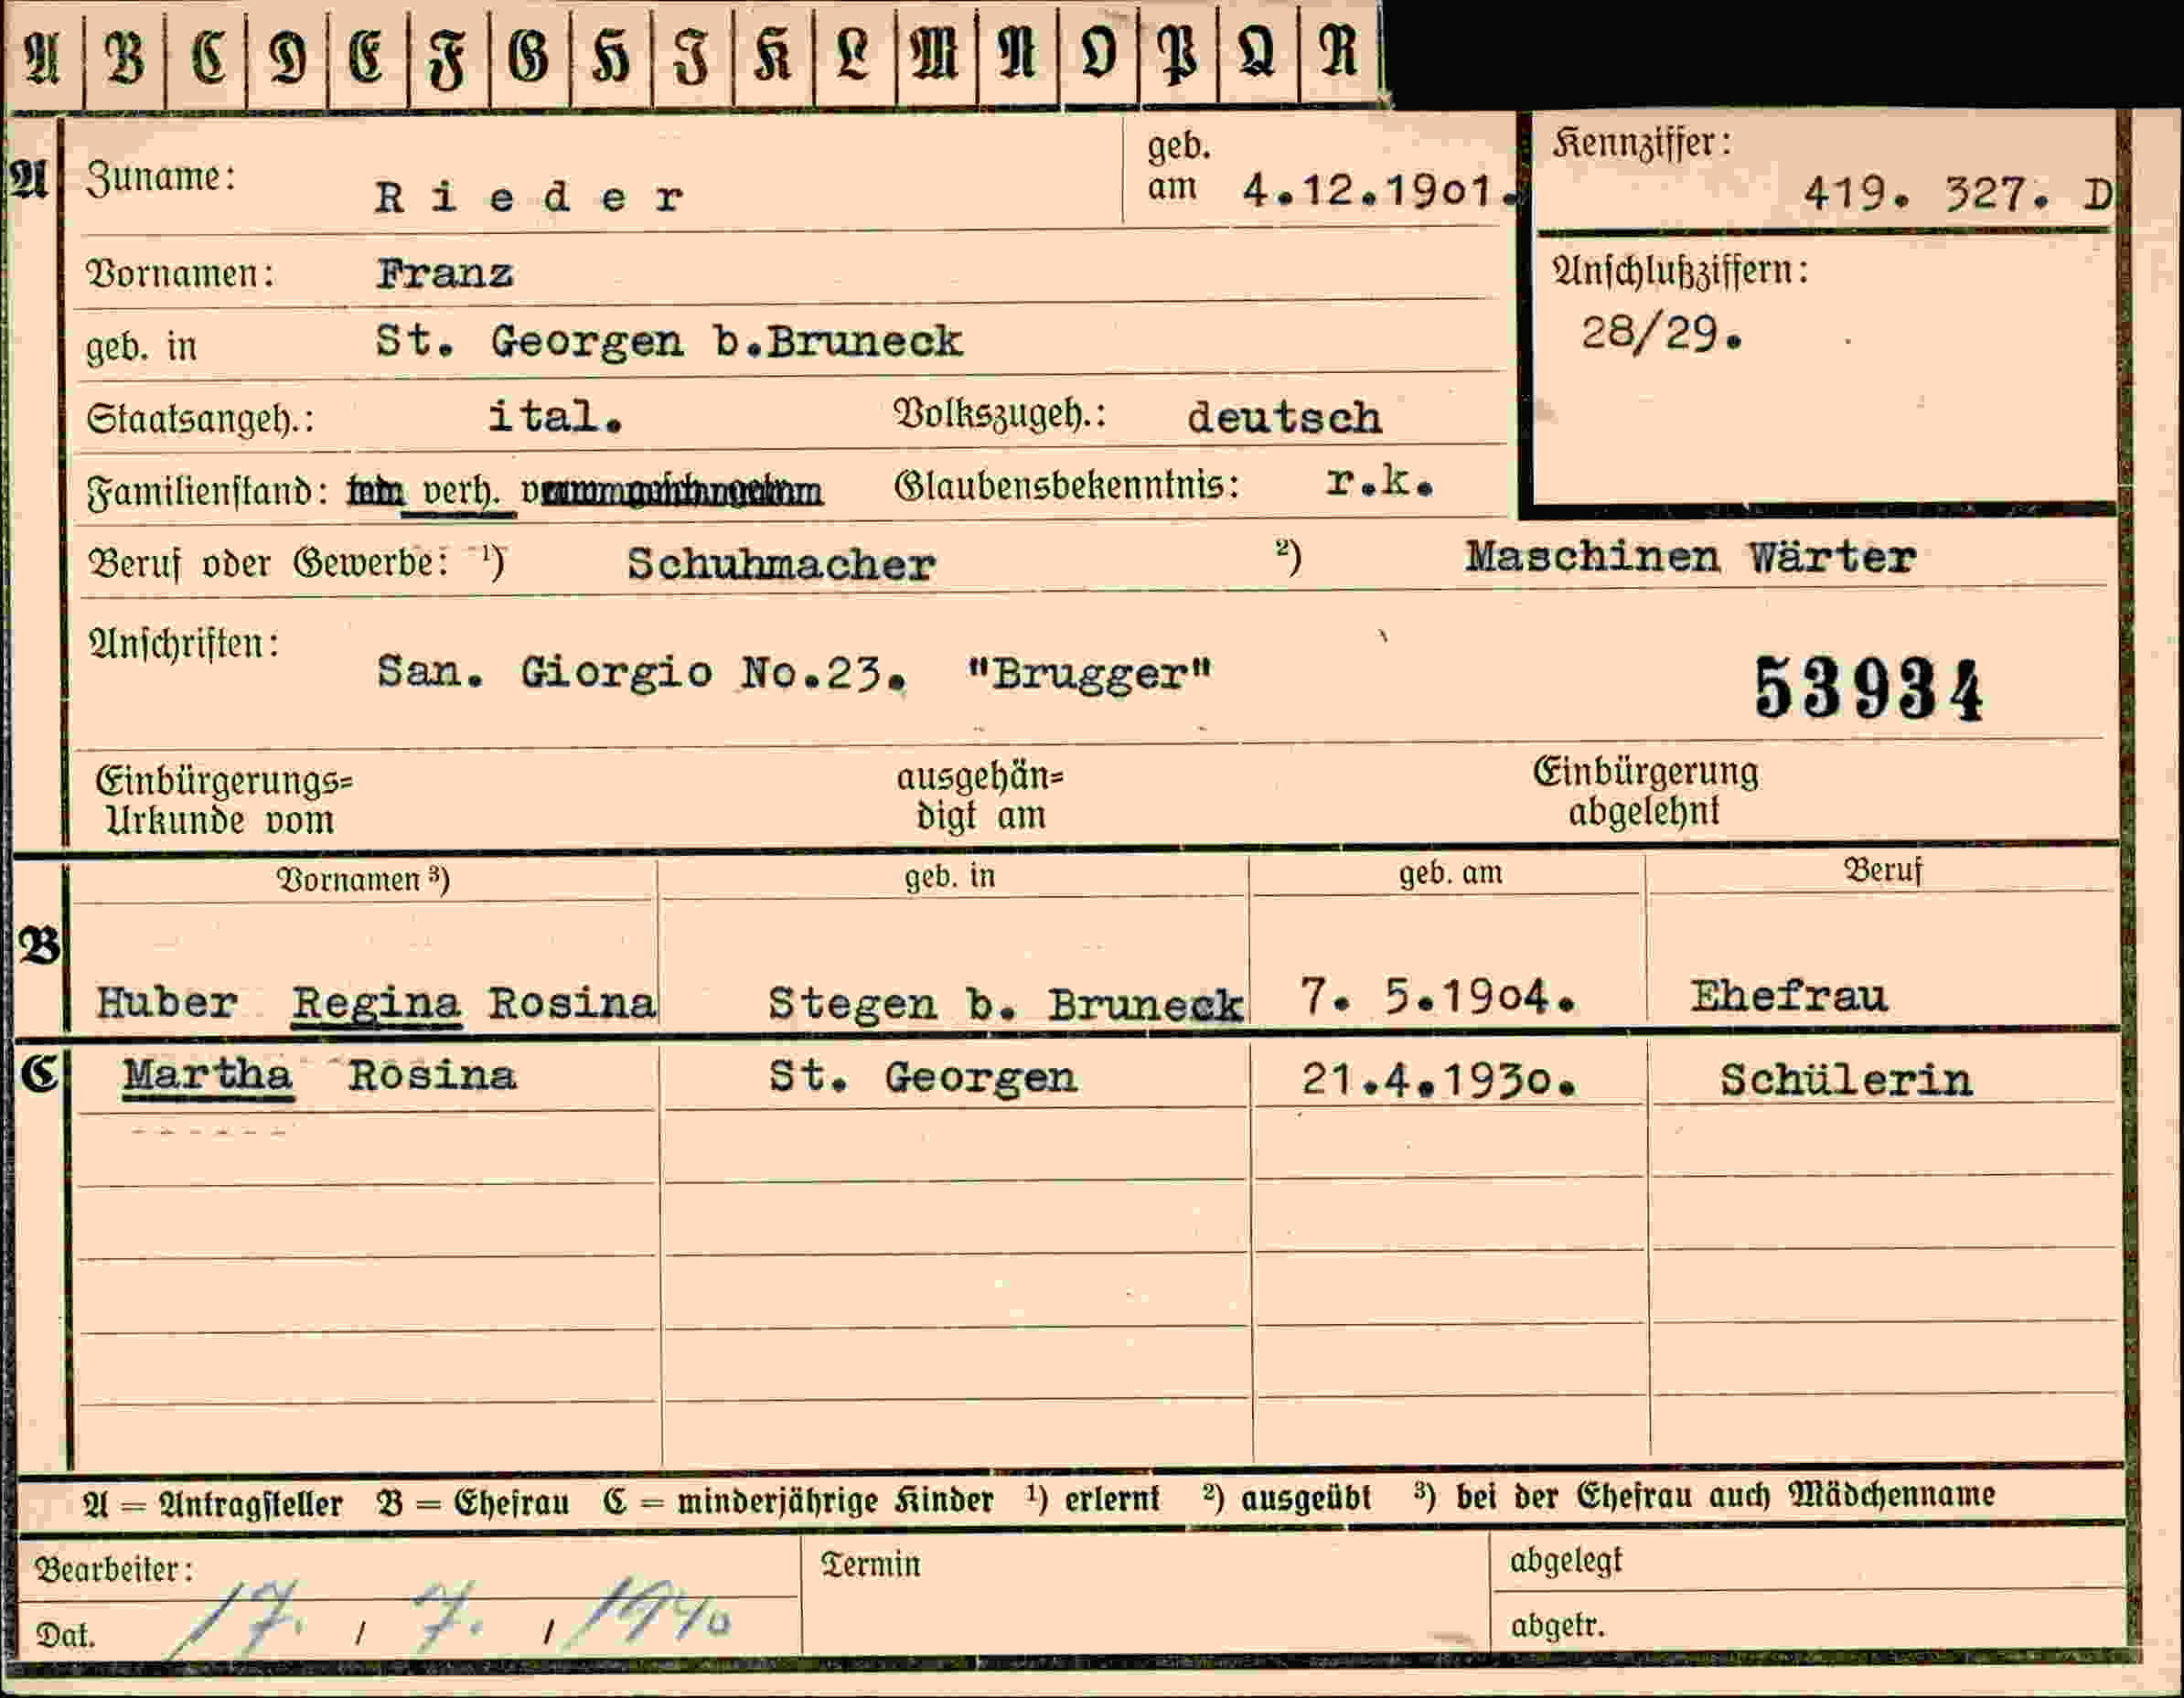 A B C D E F G H I K L M N O P Q R
A Zuname: Rieder geb. am 4.12.1901. Kennziffer: 419. 327. D
Vornamen: Franz Anschlußziffern:
geb. in St. Georgen b.Bruneck 28/29.
Staatsangeh.: ital. Volkszugeh.: deutsch
Familienstand: verh. Glaubensbekenntnis: r.k.
Beruf oder Gewerbe: ¹) Schuhmacher ²) Maschinen Wärter
Anschriften: San. Giorgio No.23. "Brugger" 53934
Einbürgerungs= ausgehän= Einbürgerung
Urkunde vom digt am abgelehnt
Vornamen ³) geb. in geb. am Beruf
B Huber Regina Rosina Stegen b. Bruneck 7. 5.1904. Ehefrau
C Martha Rosina St. Georgen 21.4.1930. Schülerin
A = Antragsteller B = Ehefrau C = minderjährige Kinder ¹) erlernt ²) ausgeübt ³) bei der Ehefrau auch Mädchenname
Bearbeiter: Termin abgelegt
Dat. 17. / 7. / 1940 abgetr.